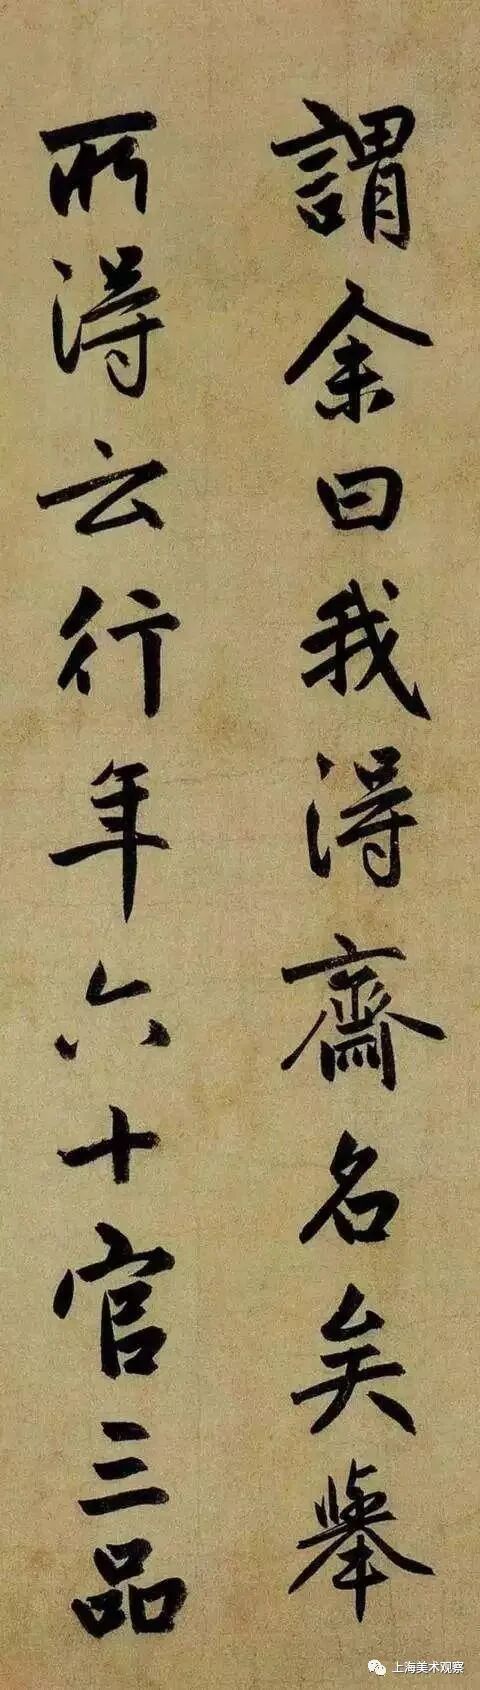 謂余曰我得齋名矣舉
所得云行年六十官三品
上海美术观察